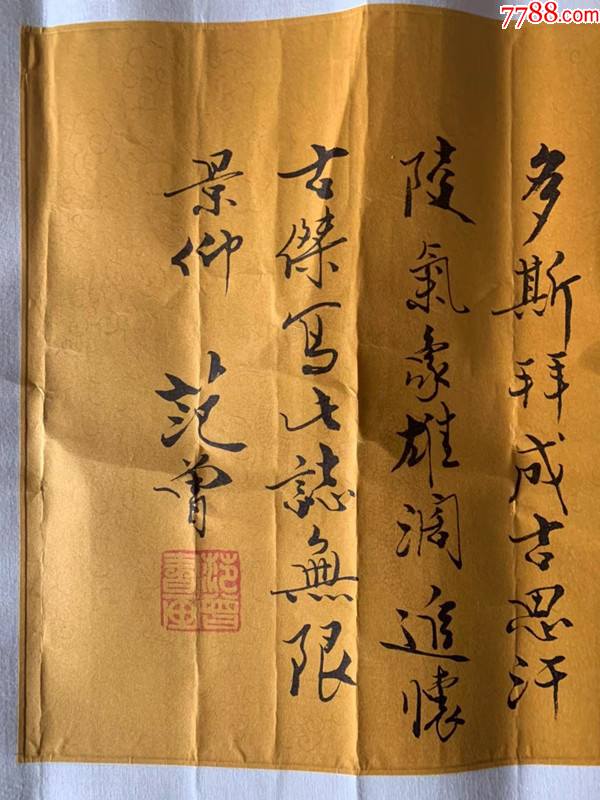 7788.com
多斯拜成古思汗
陵氣象雄濶追懷
古傑寫此誌無限
景仰 范曾
范曾書画